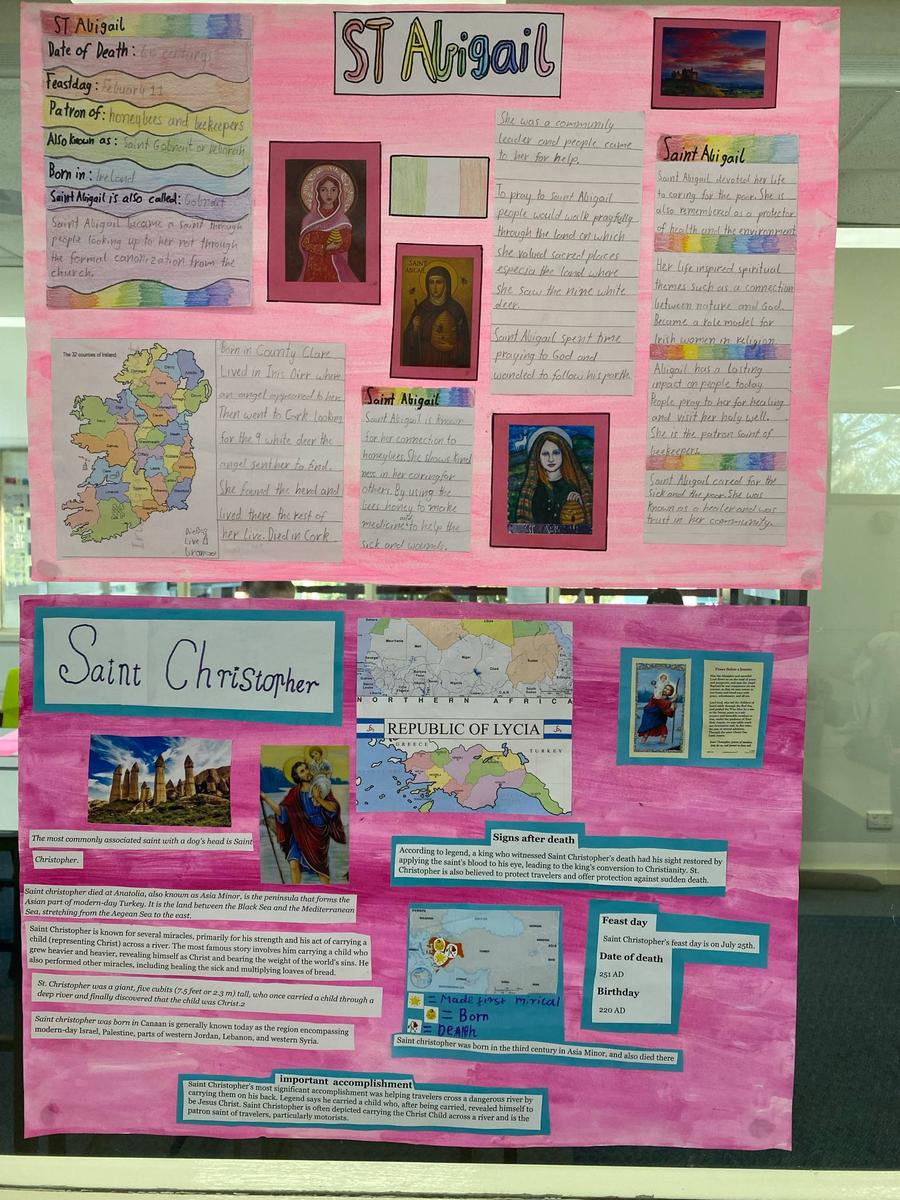 ST Abigail
ST Abigail
Date of Death: 6th century
Feastday: Febuary 11
Patron of: honeybees and beekeepers
Also known as: Saint Gobnait or Deborah
Born in: Ireland
Saint Abigail is also called: Gobnait
Saint Abigail became a saint through
people looking up to her not through
the formal canonization from the
church.
SAINT
ABIGAIL
She was a community
leader and people came
to her for help.
To pray to saint Abigail
people would walk prayfully
through the land on which
she valued sacred places
especia the land where
she saw the nine white
deer.
Saint Abigail spent time
praying to God and
wanded to follow his path.
Saint Abigail
Saint Abigail devoted her life
to caring for the poor. She is
also remembered as a protector
of health and the environment
Her life inspired spiritual
themes such as a connection
between nature and God.
Became a role model for
Irish women in religion.
Abigail has a lasting
inpact on people today.
People pray to her for healing
and visit her holy well.
She is the patron saint of
beekeepers.
Saint Abigail cared for the
sick and the poor. She was
known as a healer and was
trust in her community.
The 32 counties of Ireland
Born in County Clare
Lived in Inis Oirr where
an angel appeared to her.
Then went to Cork looking
for the 9 white deer the
angel sent her to find.
She found the herd and
lived there the rest of
her Live. Died in Cork
Saint Abigail
Saint Abigail is known
for her connection to
honeybees. She shows kind
ness in her caring for
others. By using the
bees honey to make
and
medicine to help the
sick and wounds.
Saint Christopher
Mauritania
Mali
Niger
Chad
Sudan
Libya
NORTHERN AFRICA
REPUBLIC OF LYCIA
GREECE
TURKEY
Prayer Before a Journey
The most commonly associated saint with a dog's head is Saint
Christopher.
Saint christopher died at Anatolia, also known as Asia Minor, is the peninsula that forms the
Asian part of modern-day Turkey. It is the land between the Black Sea and the Mediterranean
Sea, stretching from the Aegean Sea to the east.
Saint Christopher is known for several miracles, primarily for his strength and his act of carrying a
child (representing Christ) across a river. The most famous story involves him carrying a child who
grew heavier and heavier, revealing himself as Christ and bearing the weight of the world's sins. He
also performed other miracles, including healing the sick and multiplying loaves of bread.
St. Christopher was a giant, five cubits (7.5 feet or 2.3 m) tall, who once carried a child through a
deep river and finally discovered that the child was Christ.2
Saint christopher was born in Canaan is generally known today as the region encompassing
modern-day Israel, Palestine, parts of western Jordan, Lebanon, and western Syria.
Signs after death
According to legend, a king who witnessed Saint Christopher's death had his sight restored by
applying the saint's blood to his eye, leading to the king's conversion to Christianity. St.
Christopher is also believed to protect travelers and offer protection against sudden death.
= Made first mirical
= Born
= Death
Saint christopher was born in the third century in Asia Minor, and also died there
Feast day
Saint Christopher's feast day is on July 25th.
Date of death
251 AD
Birthday
220 AD
important accomplishment
Saint Christopher's most significant accomplishment was helping travelers cross a dangerous river by
carrying them on his back. Legend says he carried a child who, after being carried, revealed himself to
be Jesus Christ. Saint Christopher is often depicted carrying the Christ Child across a river and is the
patron saint of travelers, particularly motorists.